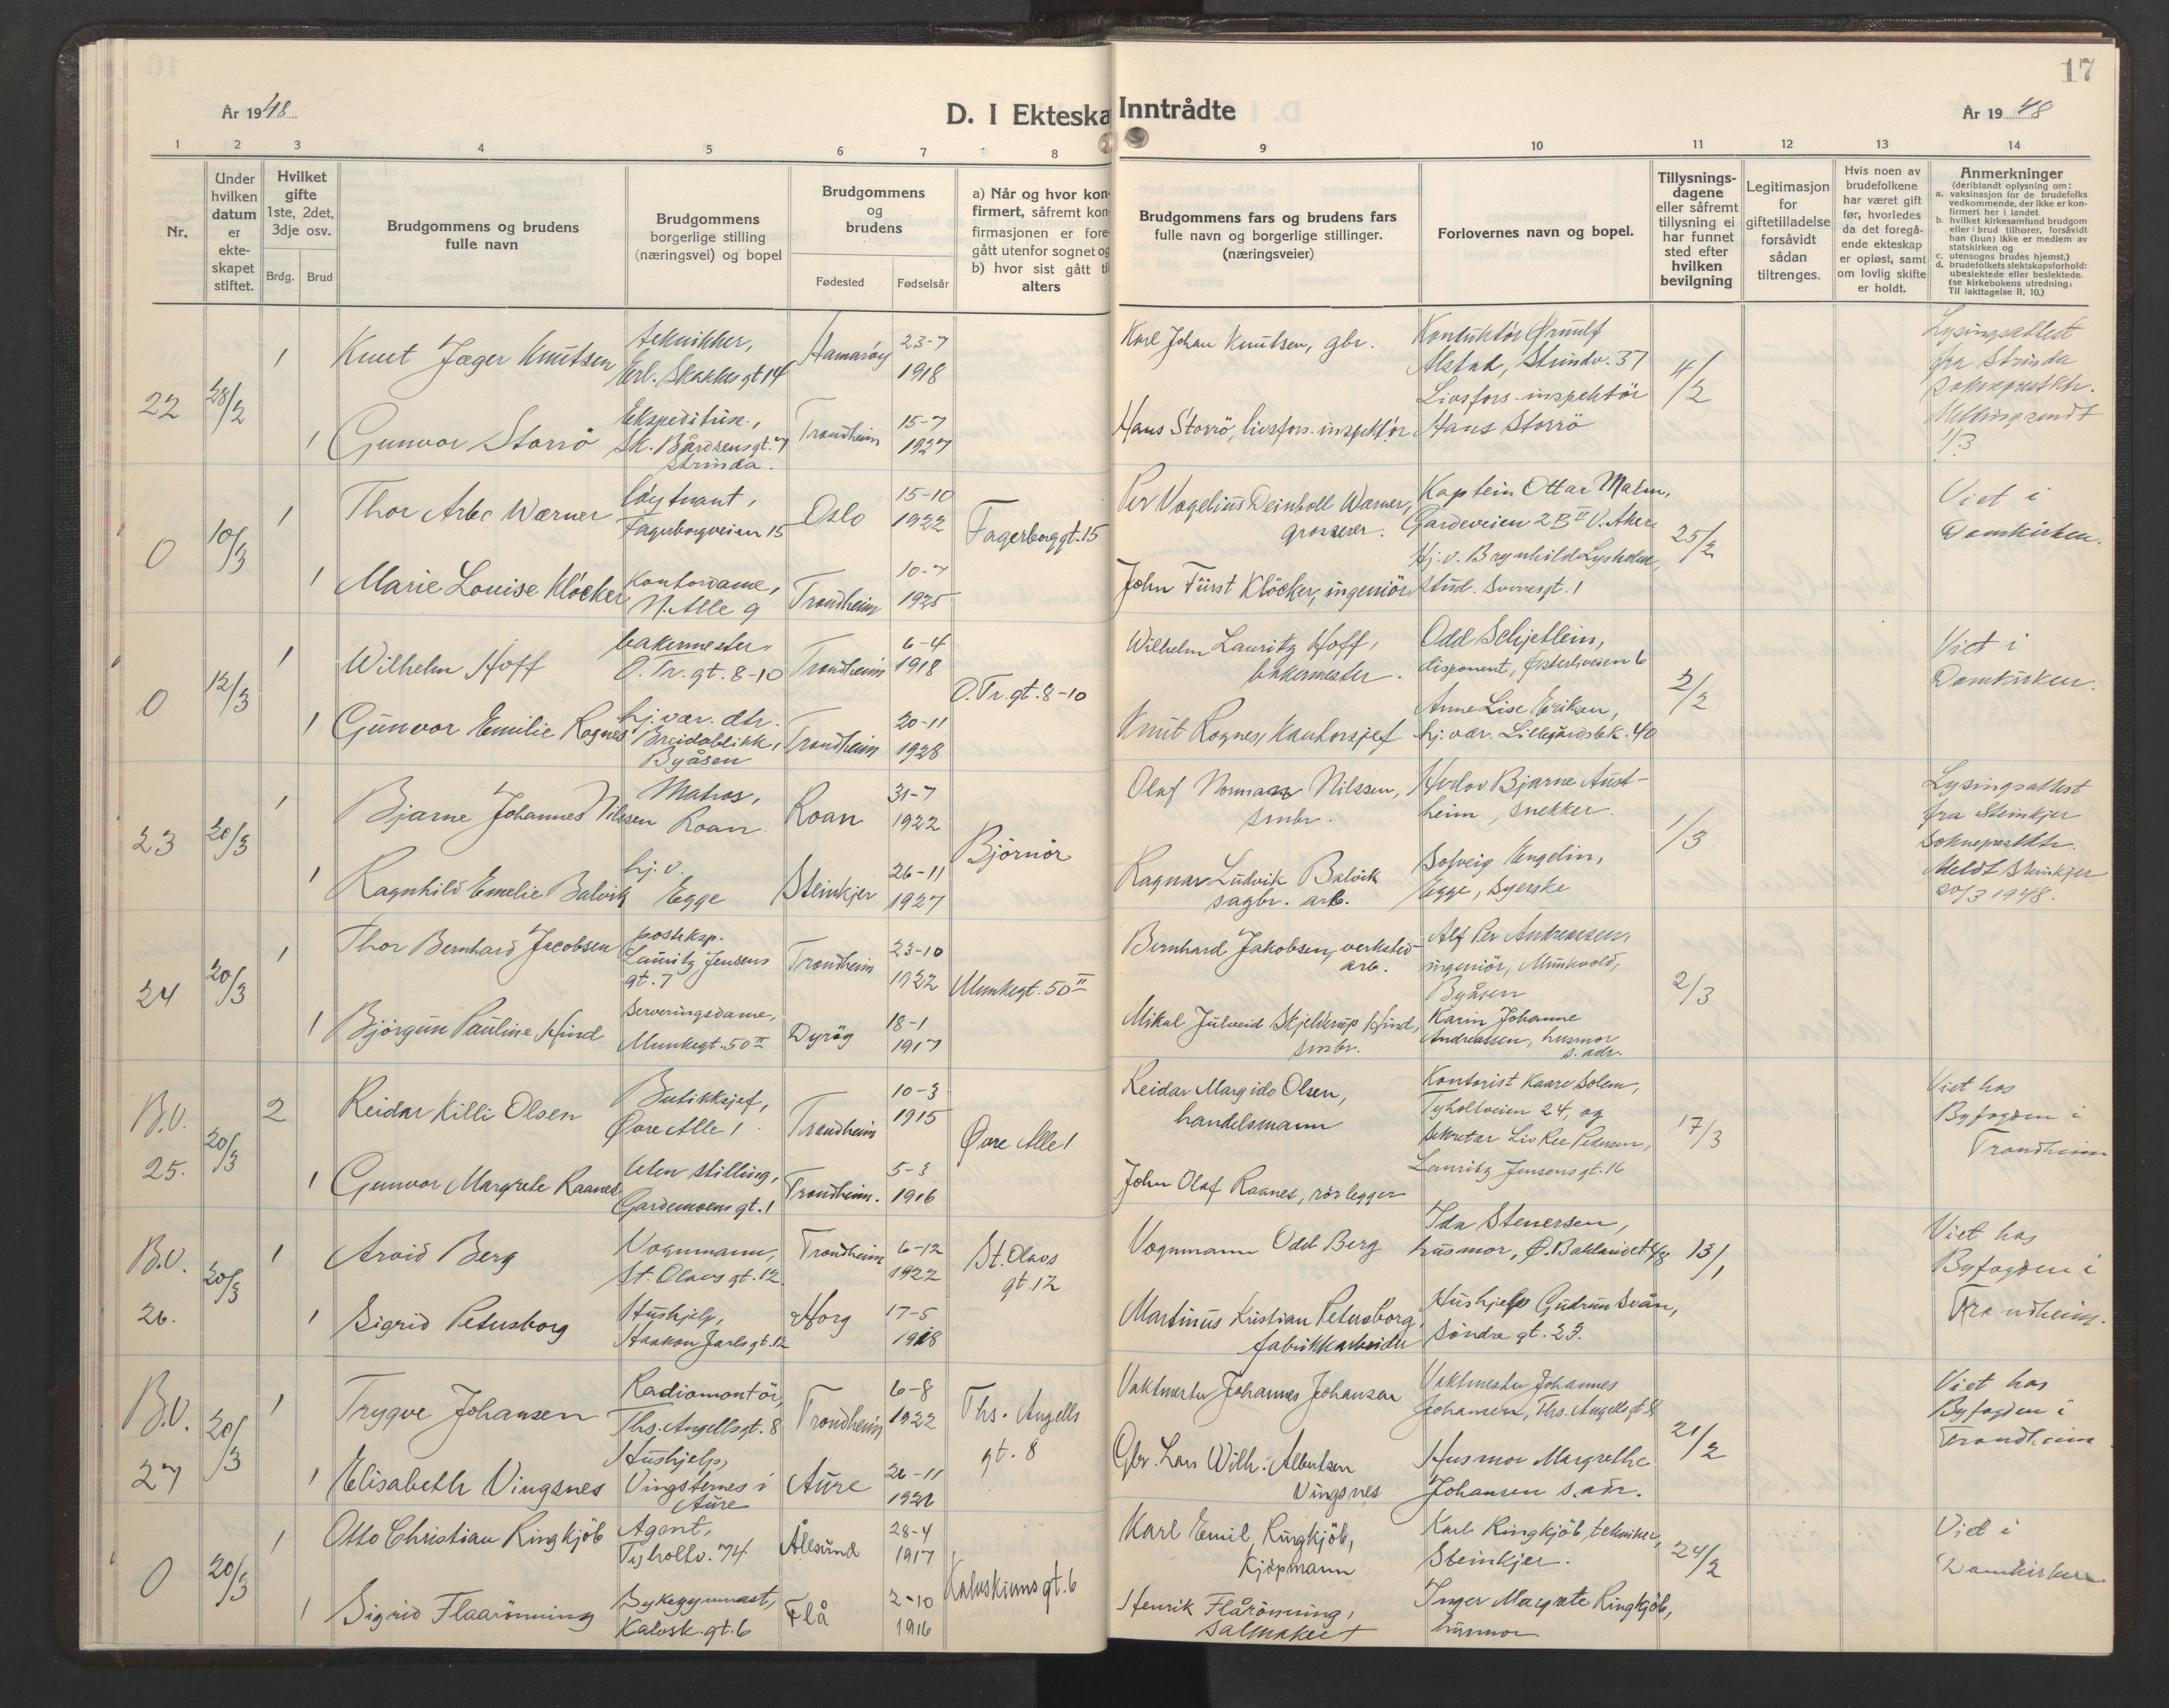 16
17
År 1948
D. I Ekteska
Inntrådte
År 1948
1
2
3
4
5
6
7
8
9
10
11
12
13
14
Nr.
Under
hvilken
datum
er
ekte-
skapet
stiftet.
Hvilket
gifte
1ste, 2det,
3dje osv.
Brdg.
Brud
Brudgommens og brudens
fulle navn
Brudgommens
borgerlige stilling
(næringsvei) og bopel
Brudgommens
og
brudens
Fødested
Fødselsår
a) Når og hvor kon-
firmert, såfremt kon-
firmasjonen er fore-
gått utenfor sognet og
b) hvor sist gått til
alters
Brudgommens fars og brudens fars
fulle navn og borgerlige stillinger.
(næringsveier)
Forlovernes navn og bopel.
Tillysnings-
dagene
eller såfremt
tillysning ei
har funnet
sted efter
hvilken
bevilgning
Legitimasjon
for
giftetilladelse
forsåvidt
sådan
tiltrenges.
Hvis noen av
brudefolkene
har været gift
før, hvorledes
da det foregå-
ende ekteskap
er opløst, samt
om lovlig skifte
er holdt.
Anmerkninger
(deriblandt oplysning om:
a. vaksinasjon for de brudefolks
vedkommende, der ikke er kon-
firmert her i landet.
b. hvilket kirkesamfund brudgom
eller brud tilhører, forsåvidt
han (hun) ikke er medlem av
statskirken og
c. utensogns brudes hjemst.)
d. brudefolkets slektskapsforhold:
ubeslektede eller beslektede.
(se kirkebokens utredning:
Til iakttagelse II. 10.)
22
28/2
1
Knut Jæger Knutsen
teknikker,
Erl. Skakkes gt 14
Hamarøy
23-7
1918
Karl Johan Knutsen, gbr.
Alstad, Strindv. 37
4/2
Lysingsattest
fra Strinda
1
Gunvor Storrö
Sk. Bårdsens gt. 7
Strinda.
Trondheim
15-7
1927
Hans Storrö, livsfors. inspektör
Livsfors-inspektör
Hans Storrö
1/3
0
10/3
1
Thor Arbo Wærner
löytnant,
Fagerborgveien 15
Oslo
15-10
1922
Fagerborggt. 15
grosserer.
Kaptein Ottar Malm,
Gardeveien 2 B II V. Aker.
25/2
Viet i
Domkirken.
1
Marie Louise Klöcker
Kontordame,
N. Alle 9
Trondheim
10-7
1925
John Fürst Klöcker, ingeniör
Hj. v. Brynhild Lysholm,
stud. Sverresgt. 1
0
12/3
1
Wilhelm Hoff
bakermester.
O. Tr. gt. 8-10
Trondheim
6-4
1918
O. Tr. gt. 8-10
Wilhelm Lauritz Hoff,
bakermester.
Odd Schjetlein,
disponent, Østerliveien 6
2/2
Viet i
Domkirken.
1
Gunvor Emilie Rognes
hj. vær. dtr.
Breidablikk,
Byåsen
Trondheim
20-11
1928
Knut Rognes, Kontorsjef
Anne Lise Eriksen,
hj. vær. Lillegårdsbk. 40
23
20/3
1
Bjarne Johannes Nilssen
Matros,
Roan.
Roan
31-7
1922
Björnör
Olaf Normann Nilssen,
smbr.
Herlov Bjarne Aust-
heim, snekker.
1/3
Lysingsattest
fra Steinkjer
Sokneprestktr.
Meldt Steinkjer
20/3 1948.
1
Ragnhild Emelie Balvik
hj. v.
Egge
Steinkjer
26-11
1927
Ragnar Ludvik Balvik
sagbr. arb.
Solveig Engelin,
Egge, syerske
24
20/3
1
Thor Bernhard Jacobsen
posteksp.
Lauritz Jensens
gt. 7
Trondheim
23-10
1922
Munkegt. 50 II
Bernhard Jakobsen, verksted-
arb.
Alf Per Andreassen,
ingeniör, Munkvold,
Byåsen
2/3
1
Björgun Pauline Hind
Serveringsdame,
Munkegt. 50 II
Dyröy
18-1
1917
Mikal Julveid Skjelderup Hind,
smbr.
Karin Johanne
Andreassen, husmor
s. adr.
B.V.
25.
20/3
2
Reidar Killi Olsen
Butikksjef,
Øvre Alle 1
Trondheim
10-3
1915
Øvre Alle 1
Reidar Margido Olsen,
handelsmann
Kontorist Kaare Solem,
Tyholtveien 24, og
17/3
Viet hos
Byfogden i
Trondheim
1
Gunvor Margrete Raanes
Uten stilling,
Gardemoens gt. 1
Trondheim.
5-3
1916
John Olaf Raanes, rörlegger
sekretær Liv Ree Pedersen,
Lauritz Jensens gt. 16
B.V.
26.
20/3
1
Arvid Berg
Vognmann,
St. Olavs gt. 12
Trondheim
6-12
1922
St. Olavs
gt. 12
Vognmann Odd Berg
Ida Stenersen,
husmor,
13/1
Viet hos
Byfogden i
Trondheim.
1
Sigrid Petersborg
Hushjelp,
Haakon Jarls gt. 12
Horg
17-5
1918
Martinus Kristian Petersborg,
fabrikkarbeider
Hushjelp Gudrun Svån,
Söndre gt. 23.
B.V.
27
20/3
1
Trygve Johansen
Radiomontör,
Ths. Angellsgt. 8
Trondheim
6-8
1922
Ths. Angells
gt. 8
Vaktmester Johannes Johansen
Vaktmester Johannes
Johansen, Ths. Angells gt 8
21/2
Viet hos
Byfogden i
Trondheim
1
Elisabeth Vingsnes
Hushjelp,
Vingsternes i
Aure
Aure
26-11
Gbr. Lars Wilh. Albertsen
Vingsnes
Husmor Margrethe
Johansen s. adr.
0
20/3
1
Otto Christian Ringkjöb
Agent,
Tyholtv. 74
Ålesund
28-4
1917
Kalvskinnsgt. 6
Karl Emil Ringkjöb,
Kjöpmann
Karl Ringkjöb, tekniker,
Steinkjer.
24/2
Viet i
Domkirken
1
Sigrid Flaarönning
Sykegymnast,
Kalvsk. gt. 6
Flå
2-10
1916
Henrik Flårönning,
salmaker
Inger Margrete Ringkjöb,
husmor